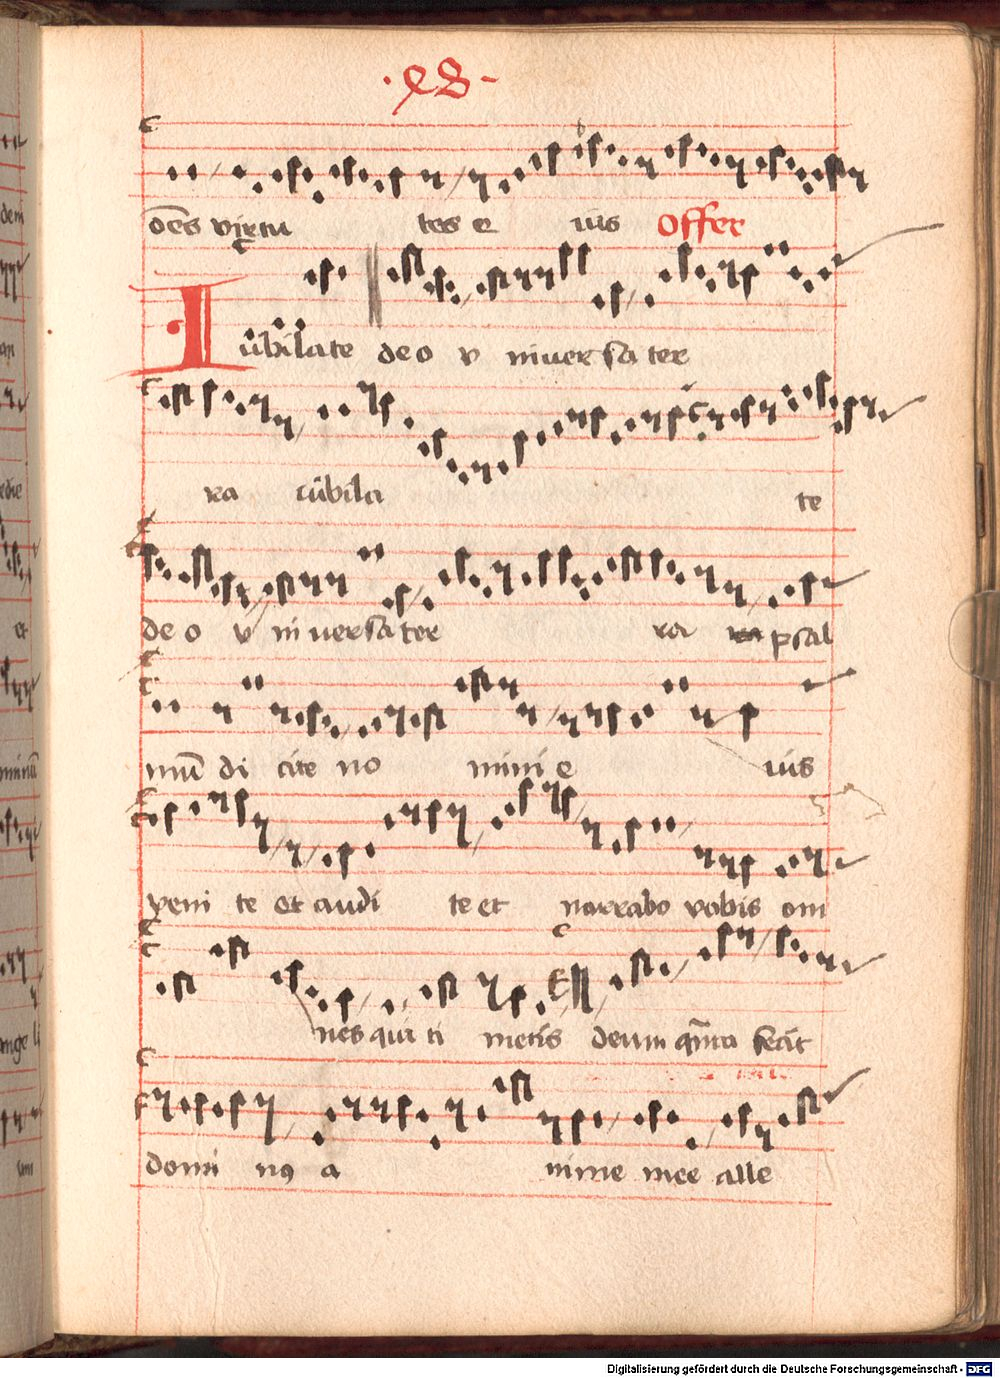 ·x8·
oēs virtu tes e ius Offer
Iubilate deo v niuersa ter
ra iubila te
deo v ni uersa ter ra psal
mū di cite no mini e ius
veni te et audi te et narrabo vobis om
nes qui ti metis deum fecit
domi nꝯ a nime mee alle
Digitalisierung gefördert durch die Deutsche Forschungsgemeinschaft - DFG